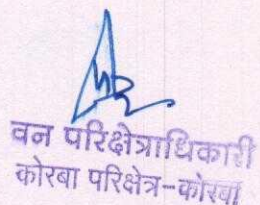 वन परिक्षेत्राधिकारी
कोरबा परिक्षेत्र-कोरबा